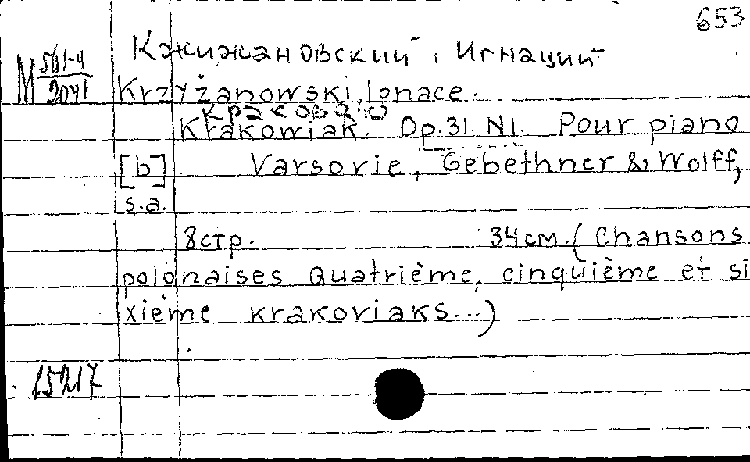 653
Кжижановский, Игнаций
М 561-4/2041
Krzyżanowski, Ignace.
Краковяк
Krakowiak. Op.31 N1. Pour piano
[b] Varsovie, Gebethner & Wolff,
s.a.
8стр. 34см. (Chansons
polonaises Quatrième, cinquième et si
xième krakoviaks...)
15217